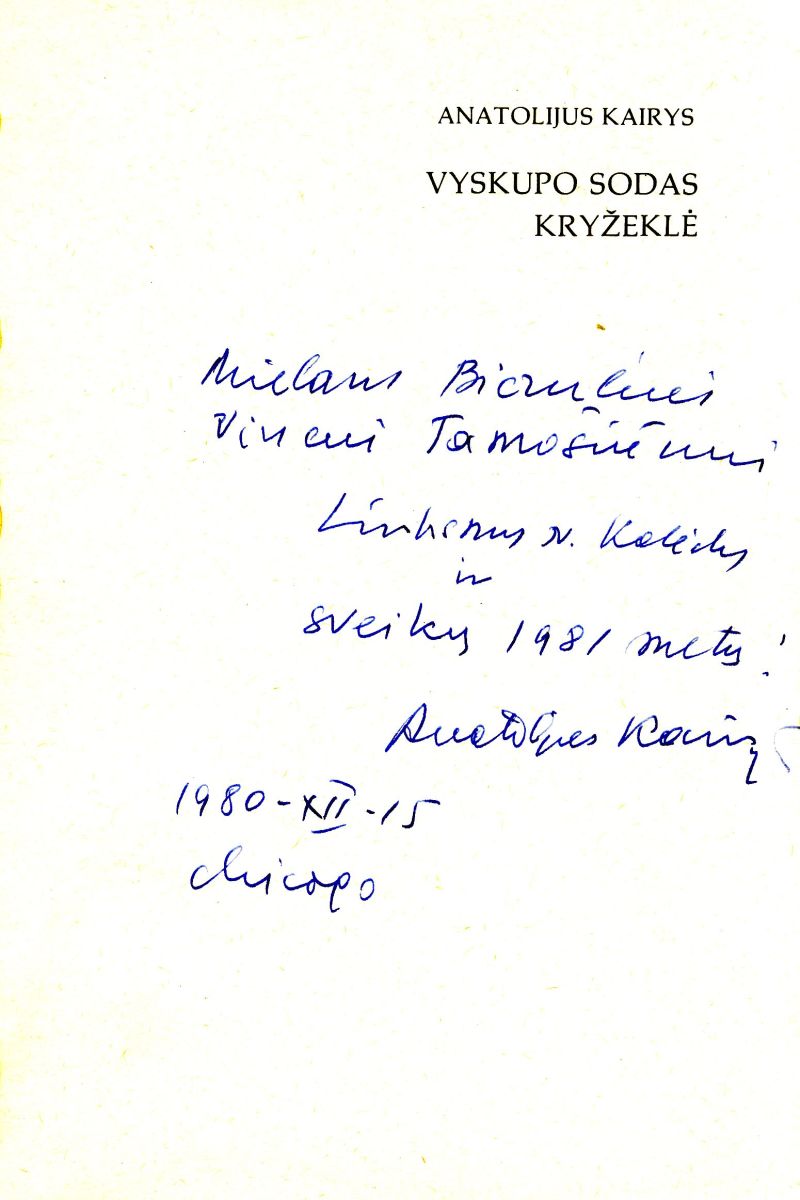 ANATOLIJUS KAIRYS
VYSKUPO SODAS
KRYŽEKLĖ
Mielam Biczuliui
Vincui Tamošiūnui
Linksmų šv. Kalėdų
ir
sveikų 1981 metų!
Anatolijus Kairys
1980-XII-15
Chicago